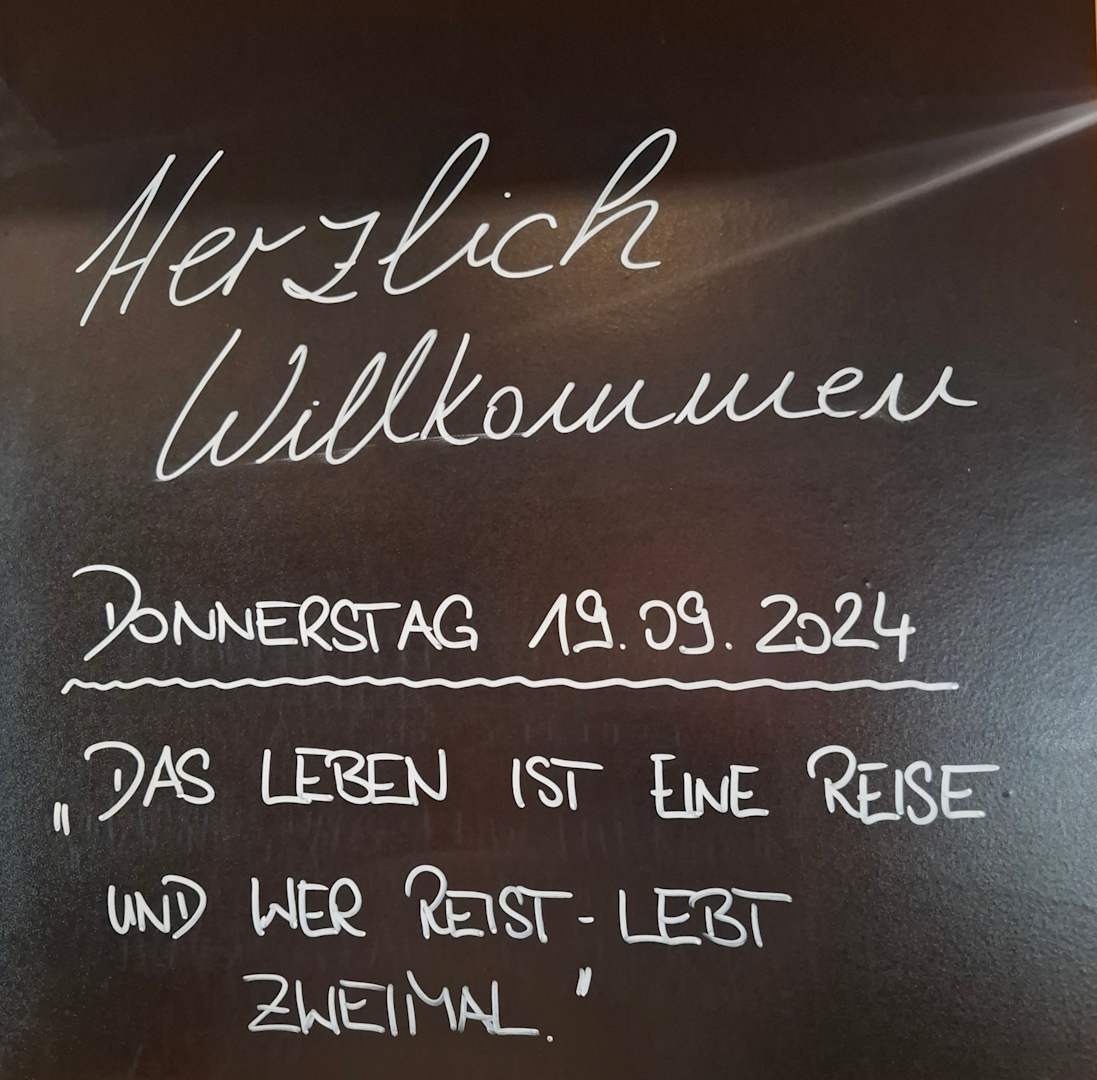 Herzlich
Willkommen
DONNERSTAG 19.09.2024
„DAS LEBEN IST EINE REISE
UND WER REIST - LEBT
ZWEIMAL."